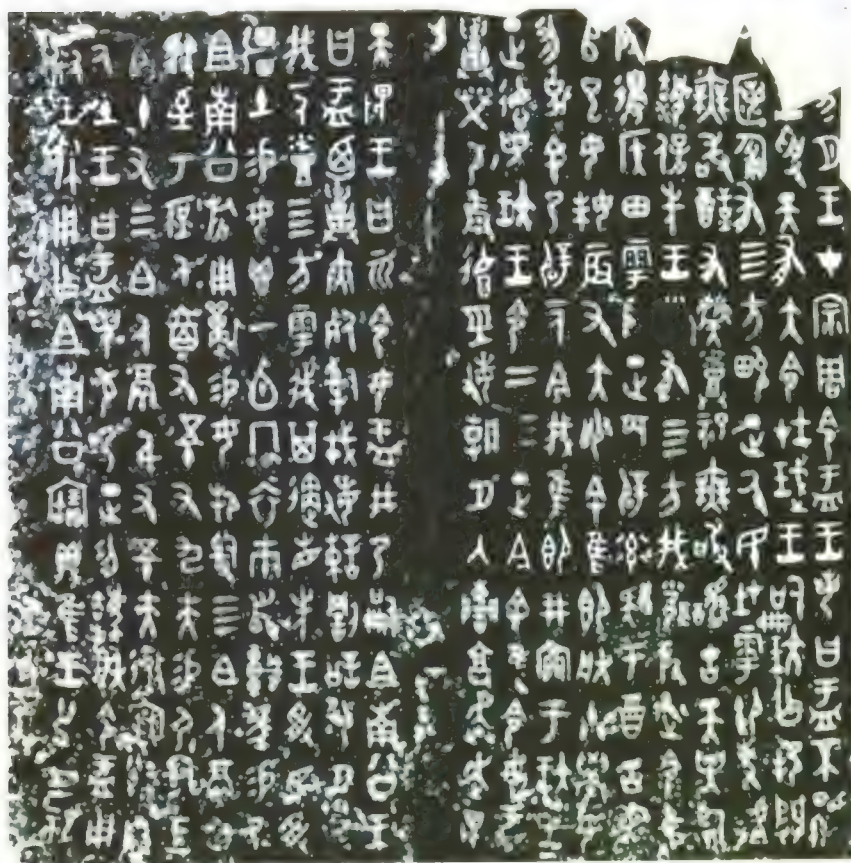 九月王才宗周令盂王若曰盂不顯
玟王受天有大令在珷王嗣玟乍邦闢
厥匿匍有四方畯正厥民在雩御事
酒無敢酖有祡烝祀無敢擾古天異臨
子法保先王有四方我聞殷述令隹
殷邊侯田雩殷正百辟率肄于酒古喪
師已女妹辰有大服余隹即朕小學女
勿余乃辟一人今我隹即井廩于玟王
正德若玟王令二三正今余隹令女盂
召榮敬雍德巠敏朝夕入諫享奔走畏
天畏王曰而令女盂井乃嗣且南公王
曰盂迺召夾死司戎敏諫罰訟夙夕召
我一人烝四方雩我其遹省先王受民受
疆土易女鬯一卣冂衣巿舄車馬易乃
且南公旂用狩易女邦司四白人鬲自
馭至于庶人六百又五十又九夫易尸司王
臣十又三白人鬲千又五十夫遷自
厥土王曰盂若敬乃正勿廢朕令盂用
對王休用乍且南公寶鼎隹王廿又三祀